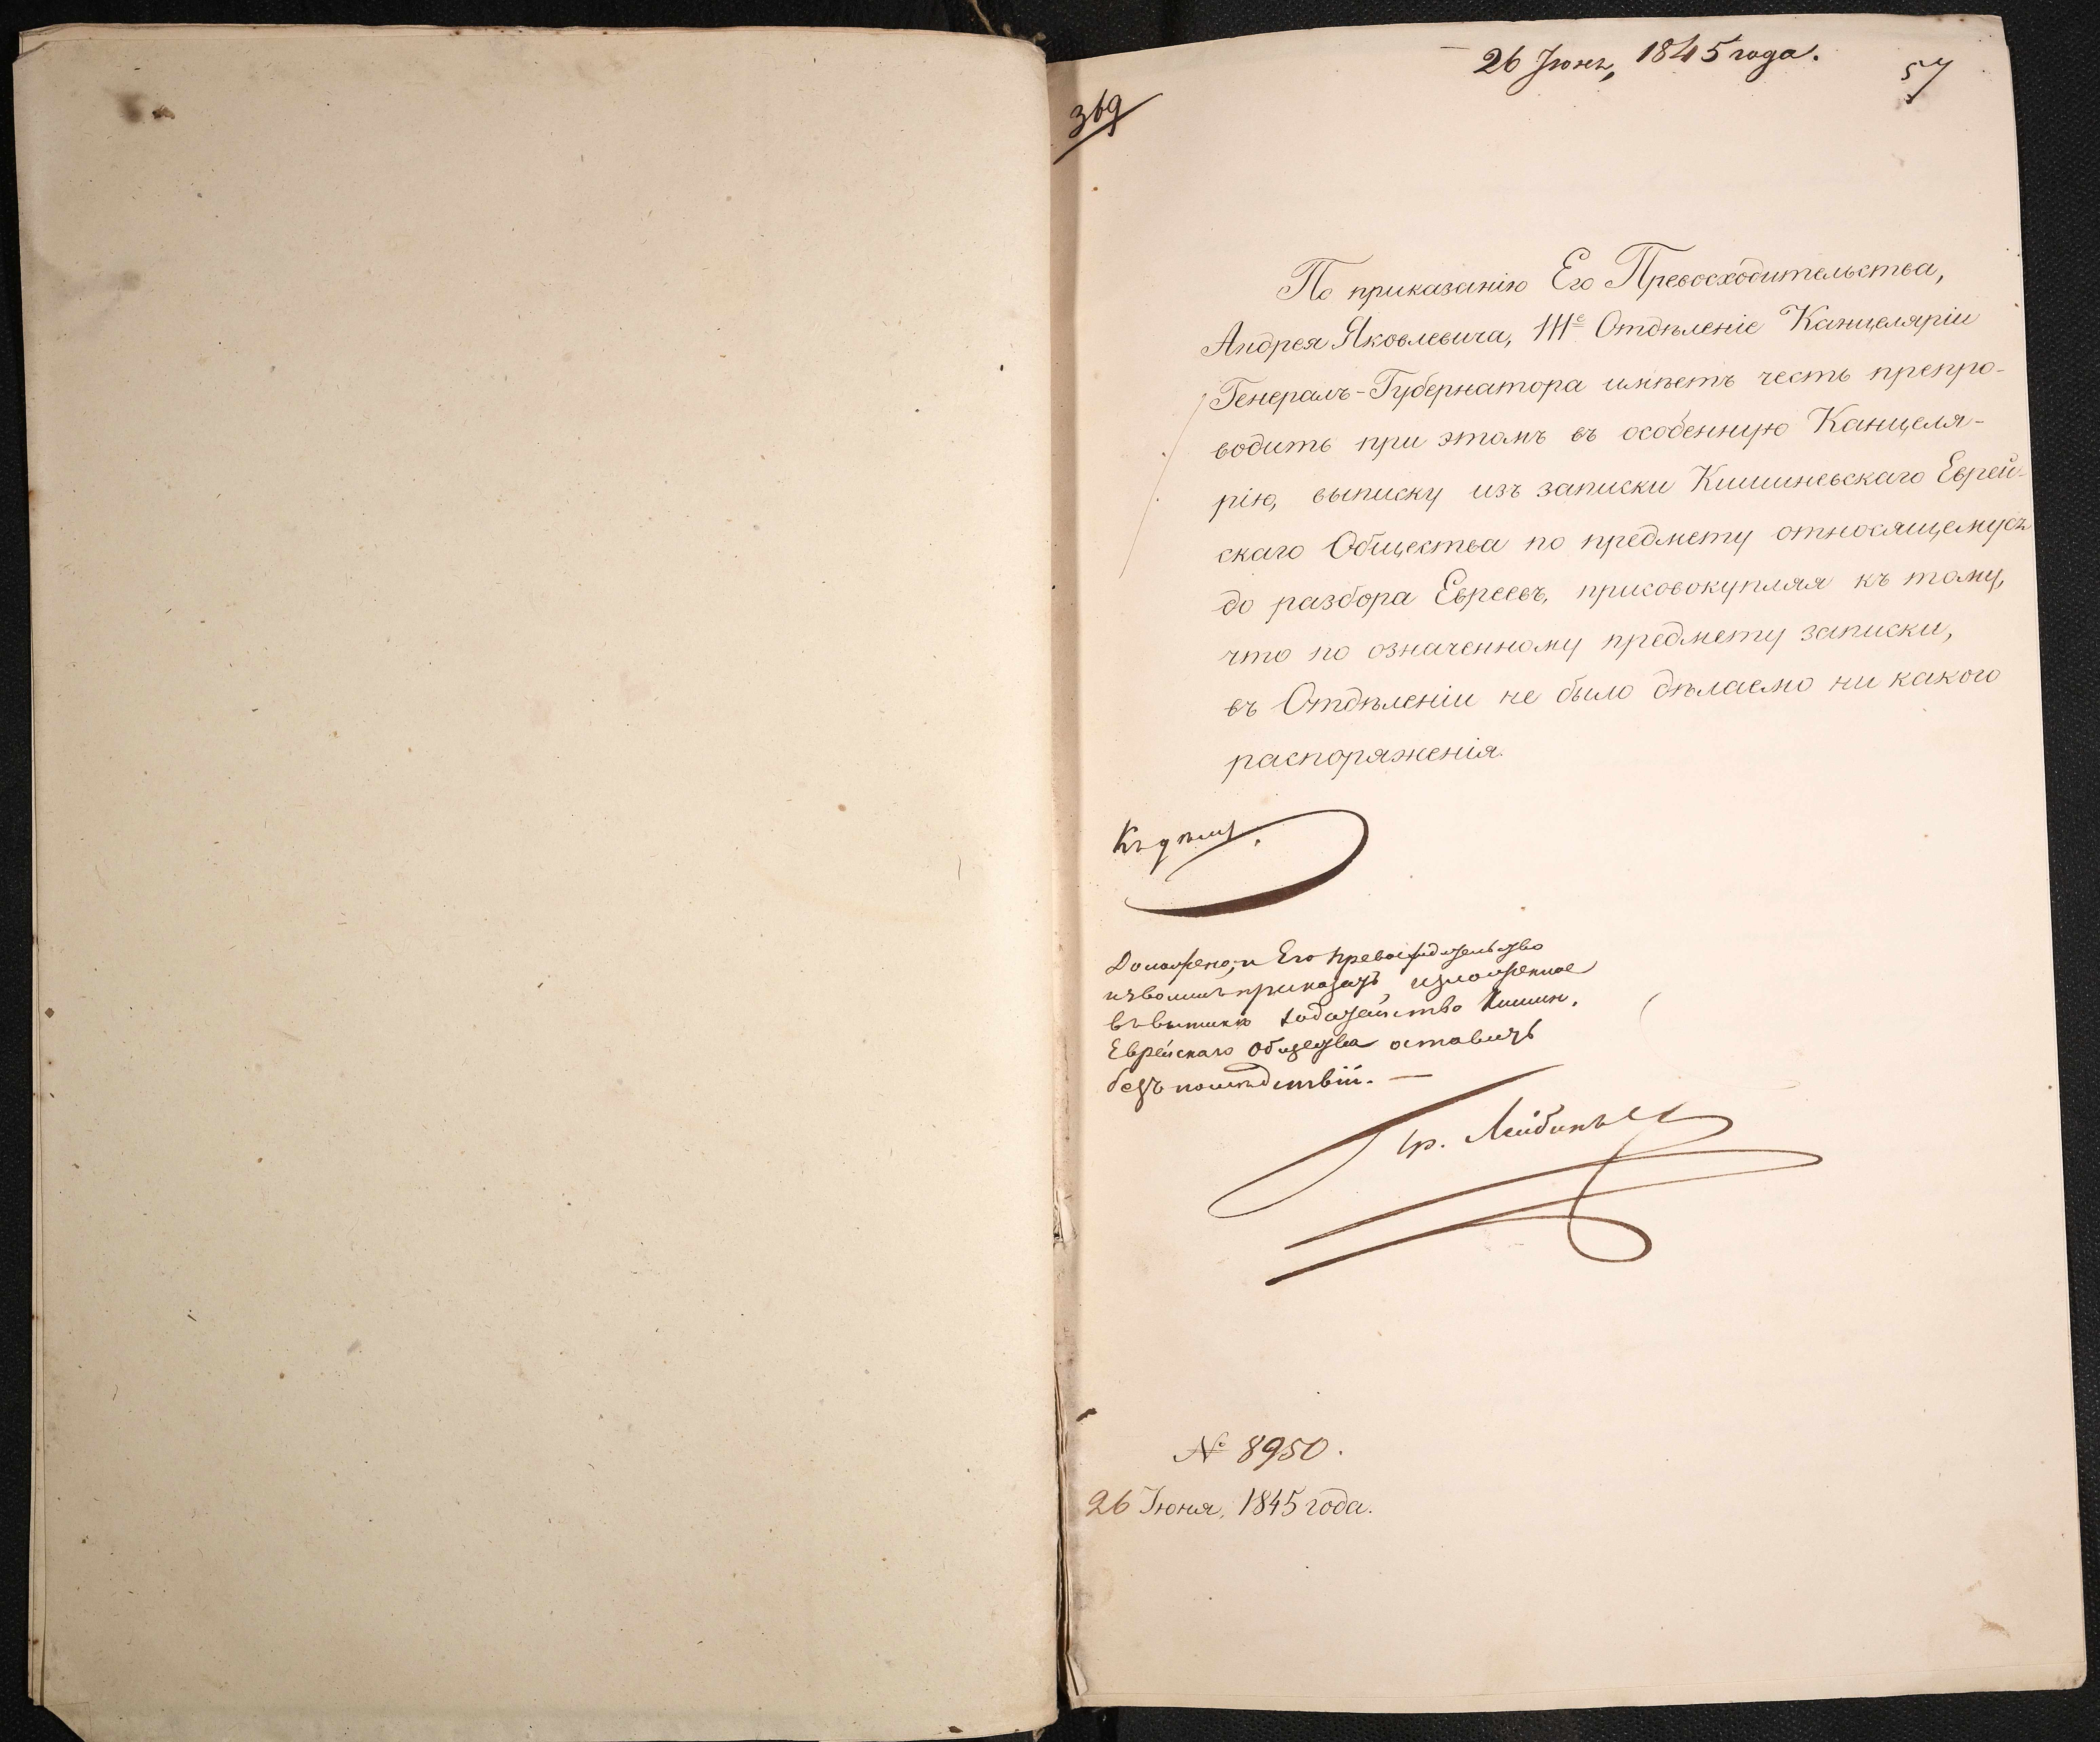 26 Іюня, 1845 года.
57
369
По приказанію Его Превосходительства,
Андрея Яковлевича, III<sup>е</sup> Отдѣленіе Канцеляріи
Генералъ-Губернатора имѣетъ честь препро-
водить при этомъ въ особенную Канцеля-
рію, выписку изъ записки Кишиневскаго Еврей-
скаго Общества по предмету относящемуся
до разбора Евреевъ, присовокупляя къ тому,
что по означенному предмету записки,
въ Отдѣленіи не было дѣлаемо ни какого
распоряженія.
Къ дѣлу.
Доложено, и Его Превосходительство
изволилъ приказать изложенное
въ выпискѣ ходатайство Кишин.
Еврейскаго Общества оставить
безъ послѣдствій. —
№ 8950.
26 Іюня, 1845 года.